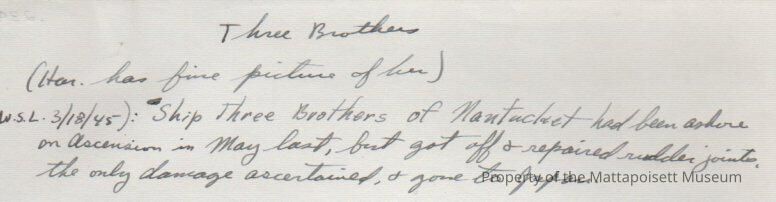 Three Brothers
(Har. has fine picture of her)
W.S.L. 3/18/45): Ship Three Brothers of Nantucket had been ashore
on Ascension in May last, but got off & repaired rudder joints,
the only damage ascertained, & gone to Japan
Property of the Mattapoisett Museum